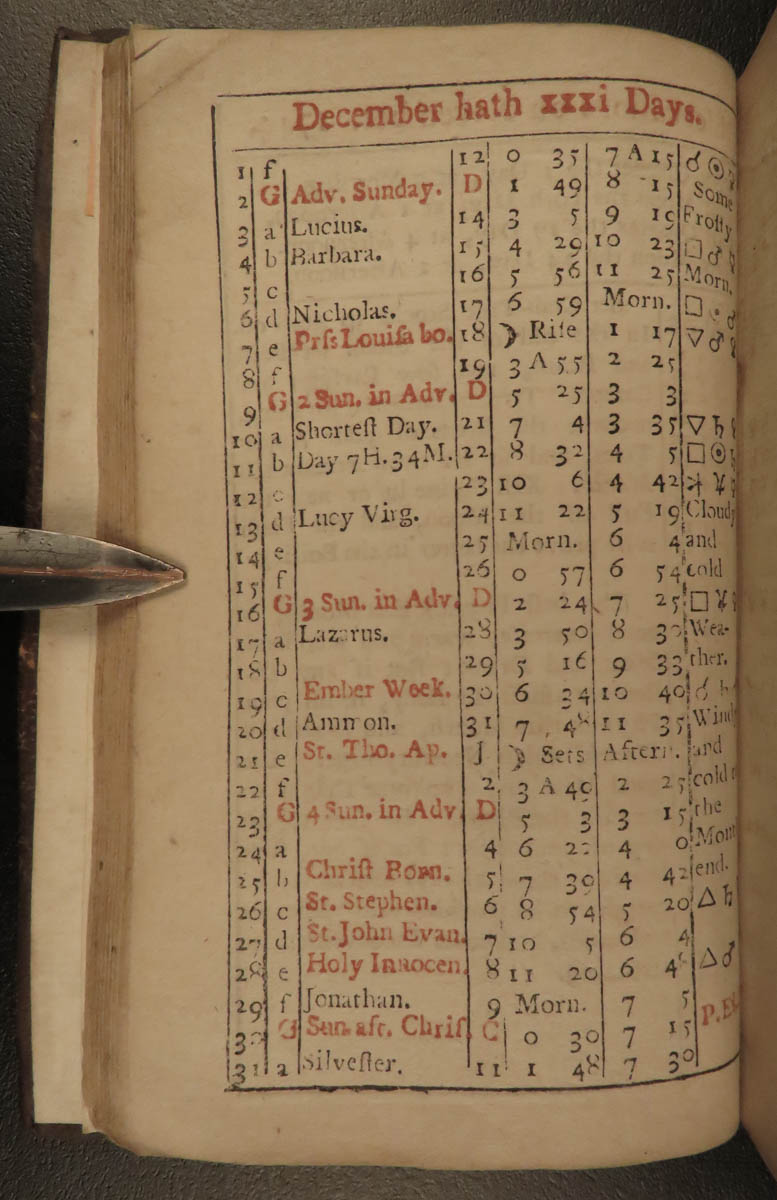 December hath xxxi Days.
1 f 12 0 35 7 A 15 ☌ ☉
2 G Adv. Sunday. D 1 49 8 15 Some
3 a Lucius. 14 3 5 9 19 Froſty
4 b Barbara. 15 4 29 10 23 □ ♂
5 c 16 5 56 11 25 Morn.
6 d Nicholas. 17 6 59 Morn. □
7 e Prſs Louiſa bo. 18 ☽ Riſe 1 17 ▽ ♂
8 f 19 3 A 55 2 25
9 G 2 Sun. in Adv. D 5 25 3 3
10 a Shorteſt Day. 21 7 4 3 35 ▽ ♄
11 b Day 7 H. 34 M. 22 8 32 4 5 □ ☉
12 c 23 10 6 4 42 ⚹ ♆
13 d Lucy Virg. 24 11 22 5 19 Cloudy
14 e 25 Morn. 6 4 and
15 f 26 0 57 6 54 cold
16 G 3 Sun. in Adv. D 2 24 7 25 □
17 a Lazarus. 28 3 50 8 30 Wea-
18 b 29 5 16 9 33 ther.
19 c Ember Week. 30 6 34 10 40 ☌
20 d Ammon. 31 7 48 11 35 Wind
21 e St. Tho. Ap. J ☽ Sets Aftern. and
22 f 2 3 A 49 2 25 cold
23 G 4 Sun. in Adv. D 5 3 3 15 the
24 a 4 6 4 0
25 b Chriſt Born. 5 7 39 4 42 end.
26 c St. Stephen. 6 8 54 5 20 △ ♄
27 d St. John Evan. 7 10 5 6 4
28 e Holy Innocen. 8 11 20 6 48 △ ♂
29 f Jonathan. 9 Morn. 7 5
30 G Sun. aft. Chriſ. C 0 30 7 15
31 a Silveſter. 11 1 48 7 30